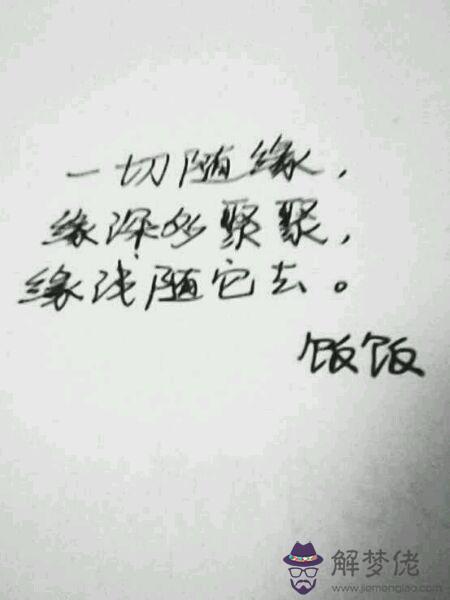 一切随缘，
缘深多聚聚，
缘浅随它去。
饭饭
解梦佬
www.jiemenglao.com